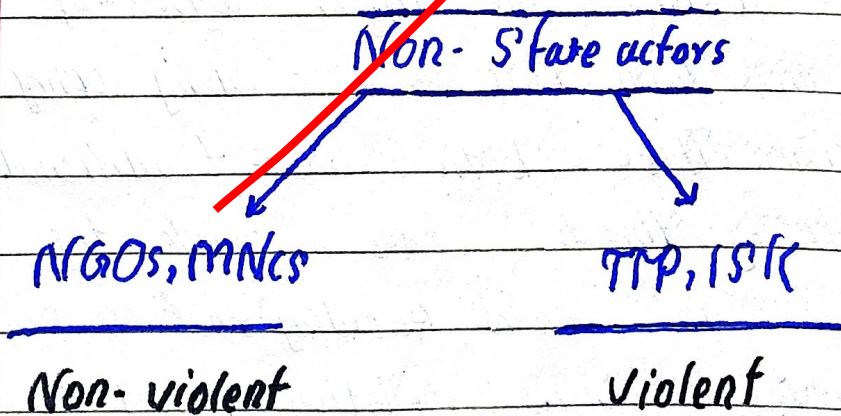 Non- State actors
NGOs, MNCs TTP, ISK
Non-violent Violent